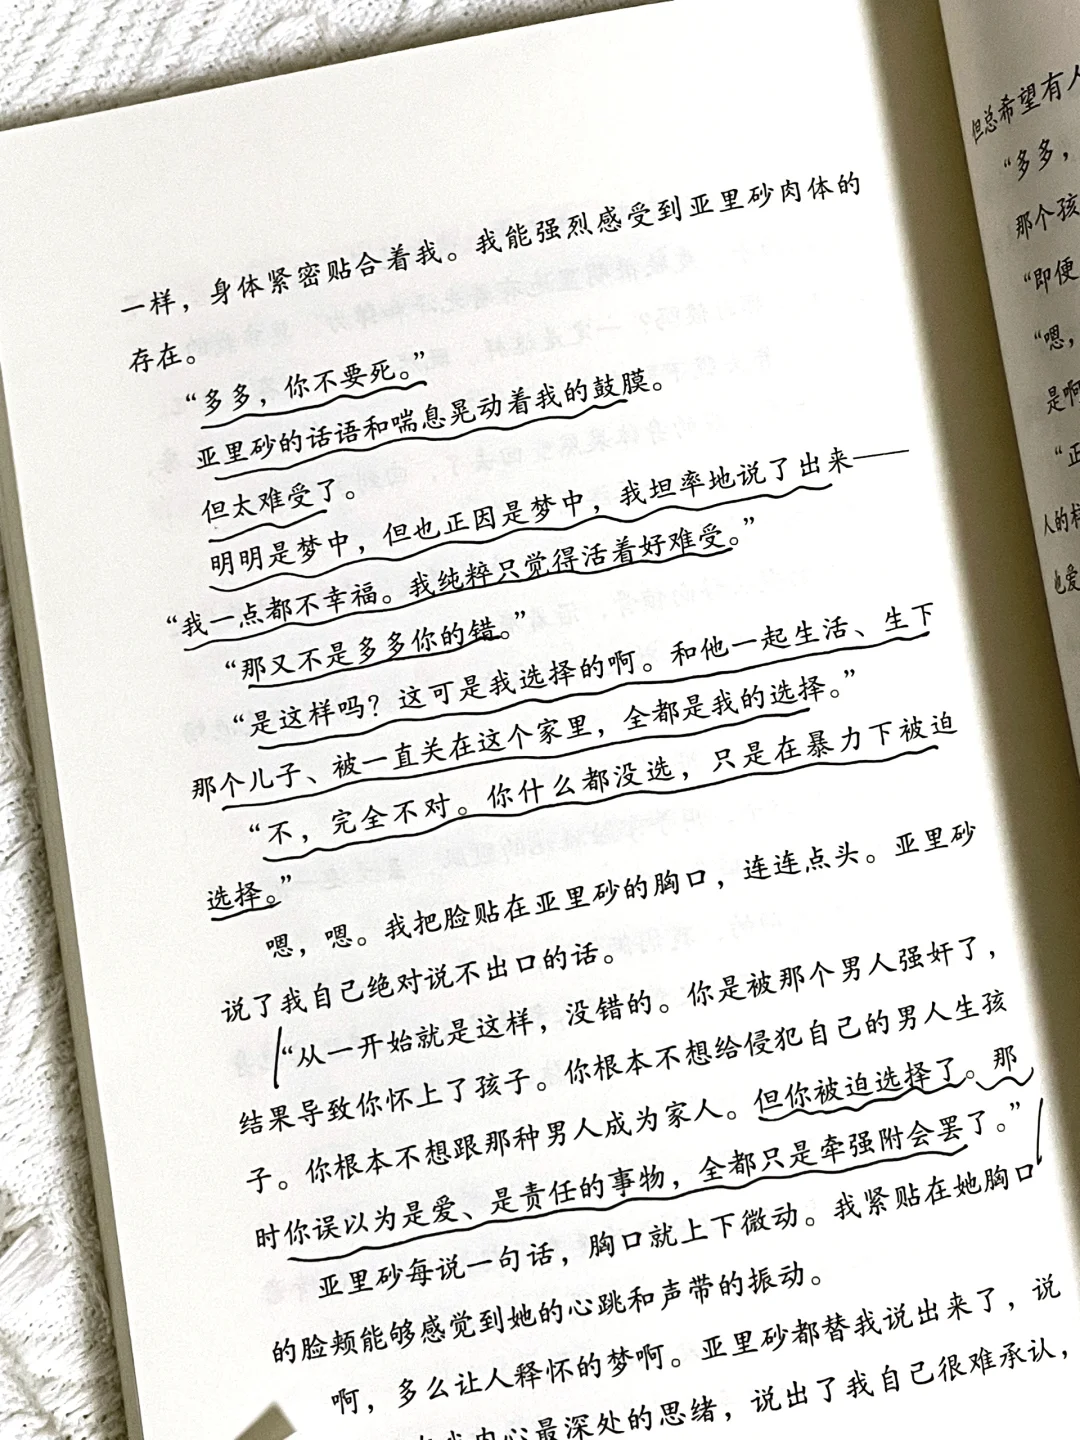 一样，身体紧密贴合着我。我能强烈感受到亚里砂肉体的
存在。
“多多，你不要死。”
亚里砂的话语和喘息晃动着我的鼓膜。
但太难受了。
明明是梦中，但也正因是梦中，我坦率地说了出来——
“我一点都不幸福。我纯粹只觉得活着好难受。”
“那又不是多多你的错。”
“是这样吗？这可是我选择的啊。和他一起生活、生下
那个儿子、被一直关在这个家里，全都是我的选择。”
“不，完全不对。你什么都没选，只是在暴力下被迫
选择。”
嗯，嗯。我把脸贴在亚里砂的胸口，连连点头。亚里砂
说了我自己绝对说不出口的话。
“从一开始就是这样，没错的。你是被那个男人强奸了，
结果导致你怀上了孩子。你根本不想给侵犯自己的男人生孩
子。你根本不想跟那种男人成为家人。但你被迫选择了。那
时你误以为是爱、是责任的事物，全都只是牵强附会罢了。”
亚里砂每说一句话，胸口就上下微动。我紧贴在她胸口
的脸颊能够感觉到她的心跳和声带的振动。
啊，多么让人释怀的梦啊。亚里砂都替我说出来了，说
我内心最深处的思绪，说出了我自己很难承认，
但总希望有人
“多多，
那个孩
“即便
“嗯，
是啊
“正
人的样
也爱